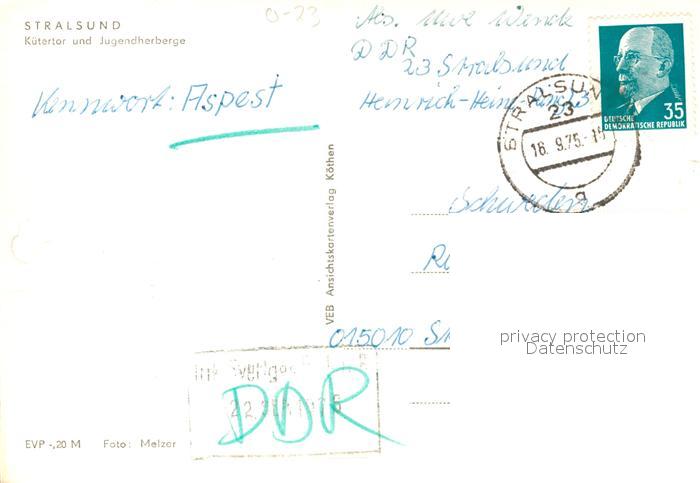 STRALSUND
Kütertor und Jugendherberge
0-23
Abs. Uwe Wenck
DDR
23 Stralsund
Heinrich-Heine-Ring 3
Kennwort: Aspest
35
DEUTSCHE
DEMOKRATISCHE REPUBLIK
STRALSUN
23
16. 9.75.-1
a
Schweden
VEB Ansichtskartenverlag Köthen
015010
privacy protection
Datenschutz
Ink
DDR
EVP -,20 M Foto: Melzer